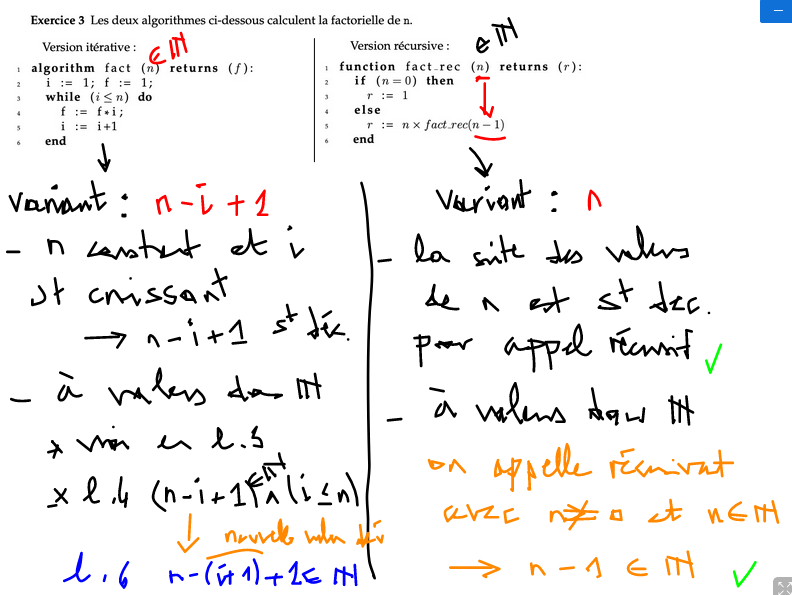 Exercice 3 Les deux algorithmes ci-dessous calculent la factorielle de n.
Version itérative :
∈ ℕ
1 algorithm fact (n) returns (f):
2 i := 1; f := 1;
3 while (i ≤ n) do
4 f := f*i;
5 i := i+1
6 end
variant : n-i+1
- n constant et i
st croissant
→ n-i+1 st déc.
- à valeurs dans ℕ
* vrai en l.3
* l.4 (n-i+1) ∈ ℕ ∧ (i ≤ n)
nouvelle valeur de i
l.6 n-(i+1)+1 ∈ ℕ
Version récursive :
∈ ℕ
1 function fact_rec (n) returns (r):
2 if (n = 0) then
3 r := 1
4 else
5 r := n × fact_rec(n − 1)
6 end
variant : n
- la suite des valeurs
de n est st déc.
par appel récursif ✓
- à valeurs dans ℕ
on appelle récursivt
avec n≠0 et n ∈ ℕ
→ n-1 ∈ ℕ ✓